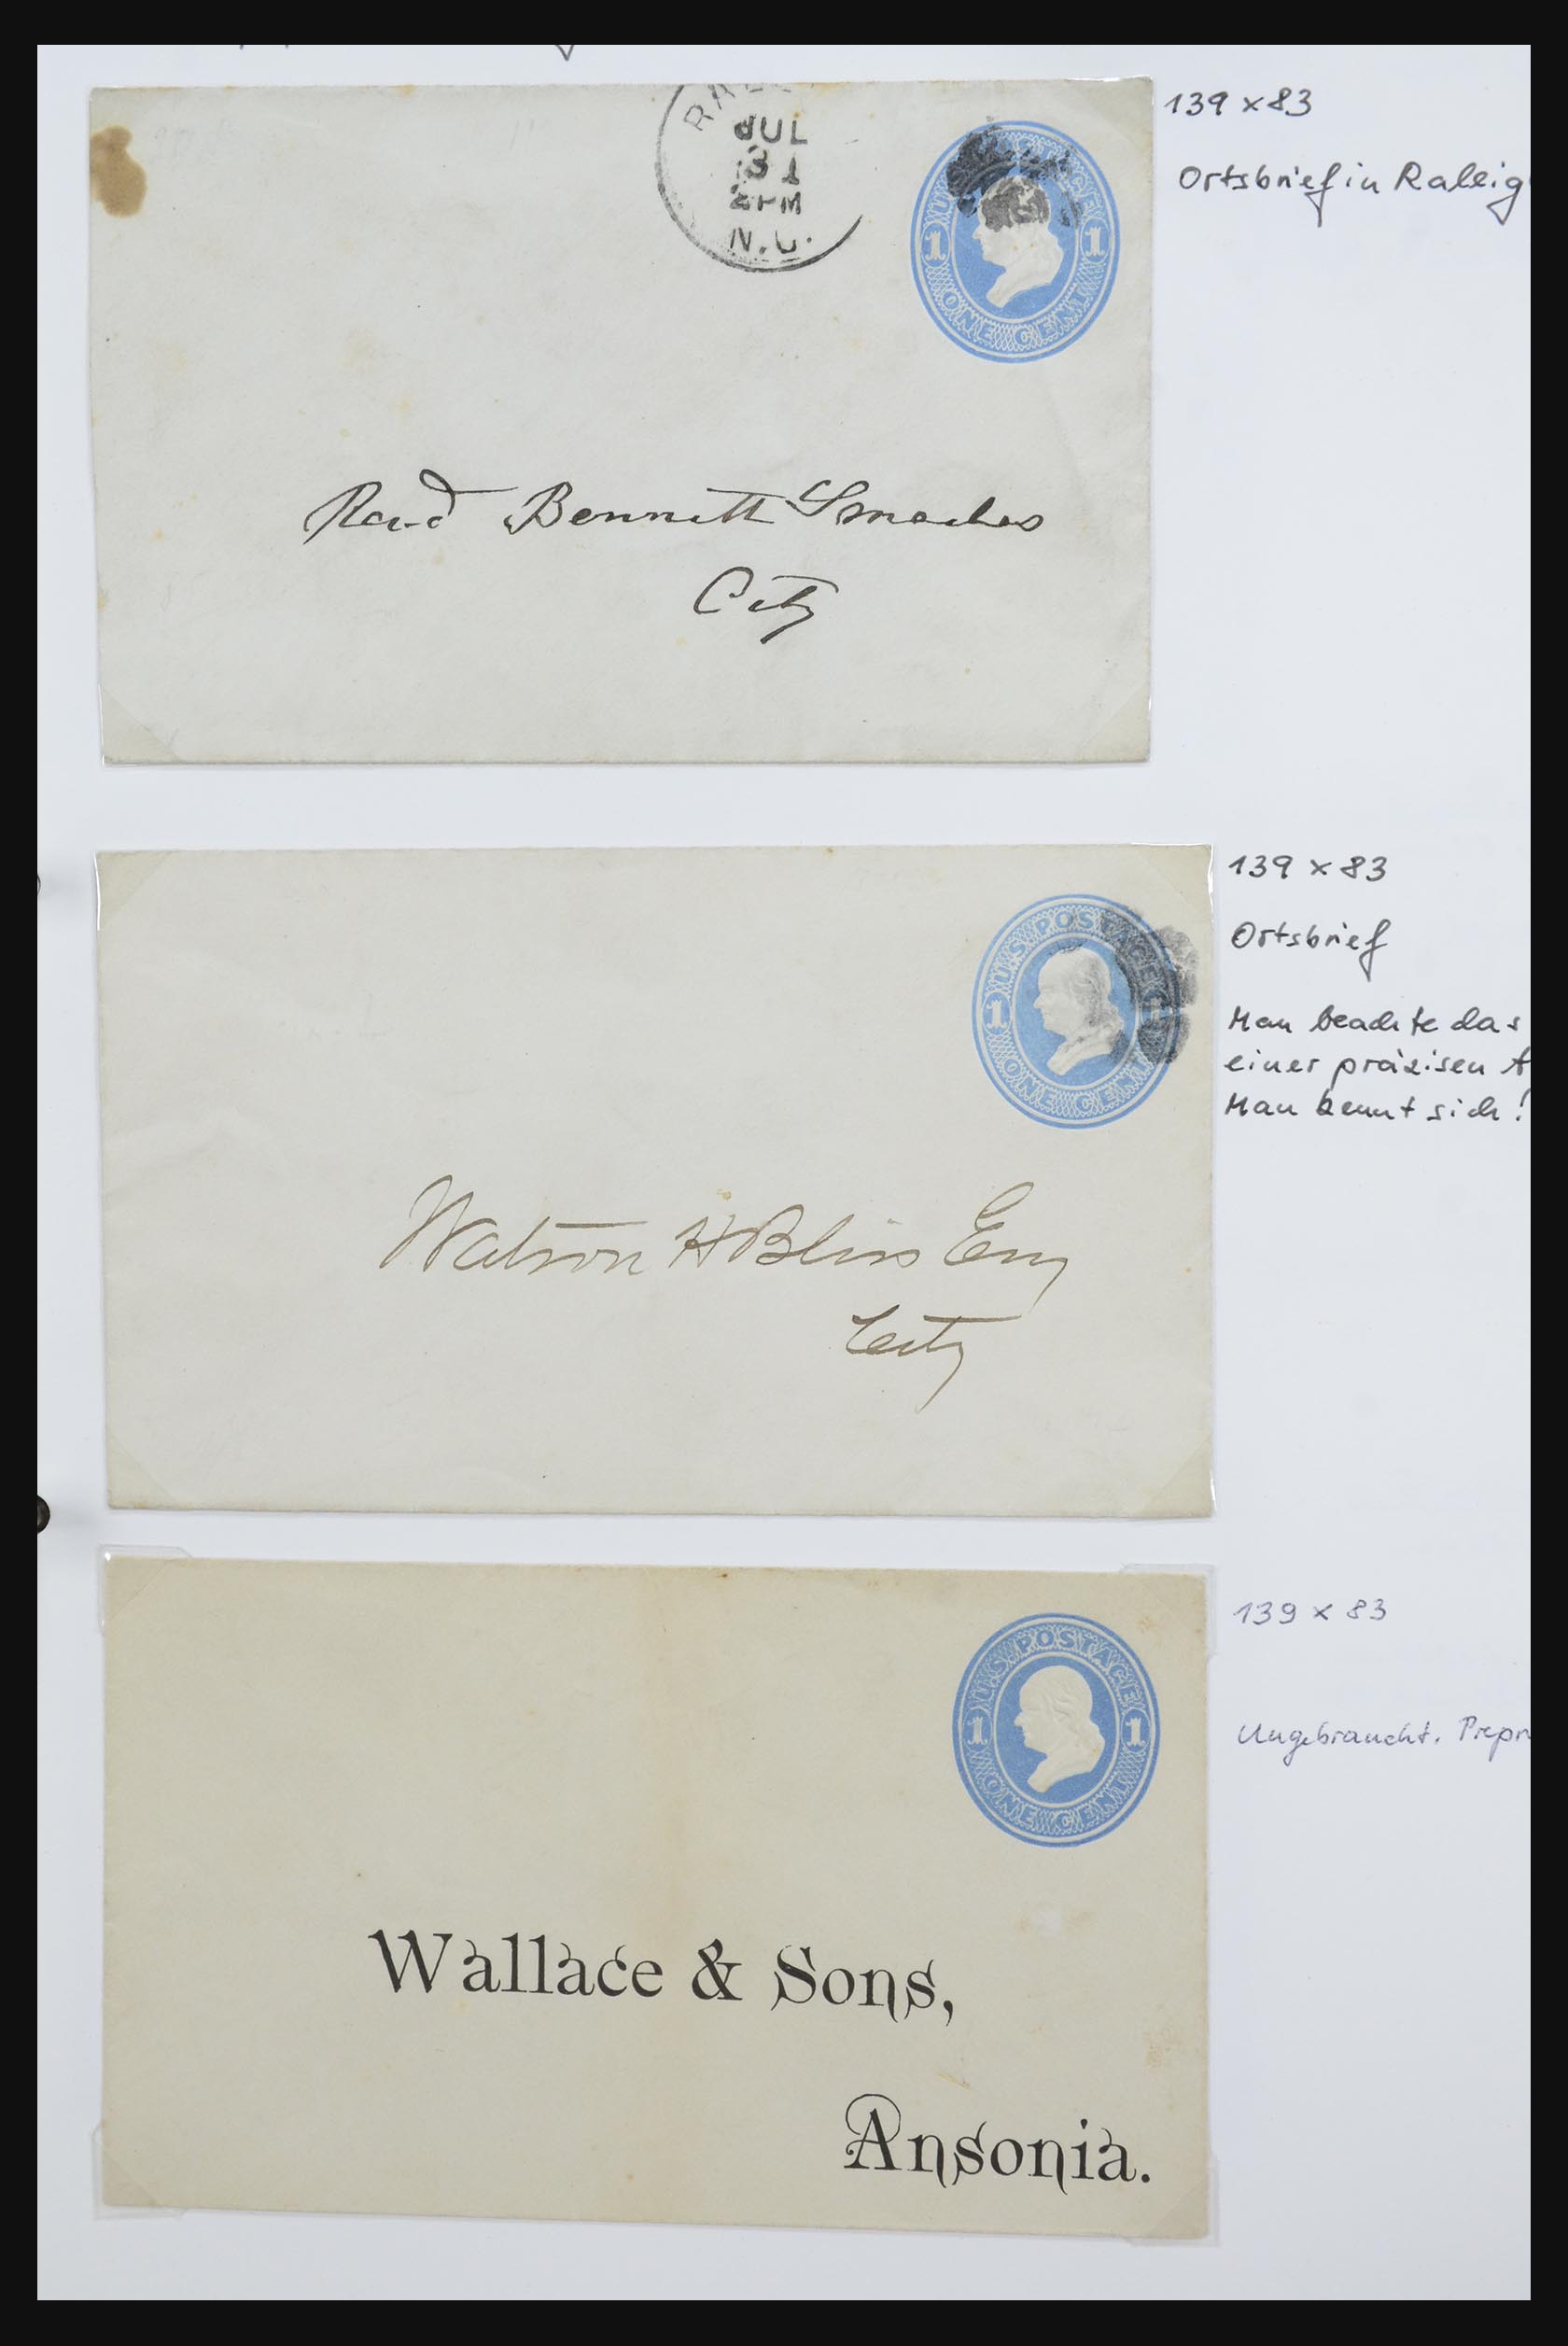 139 x 83
Ortsbrief in Raleig
JUL
31
2 PM
N.C.
U.S. POSTAGE
1 1
ONE CENT
Bennett Smedes
City
139 x 83
Ortsbrief
Man beachte das
einer präzisen A
Man kennt sich!
U.S. POSTAGE
1 1
ONE CENT
Watson H Bliss Esq
City
139 x 83
Ungebraucht. Prepr
U.S. POSTAGE
1 1
ONE CENT
Wallace & Sons,
Ansonia.